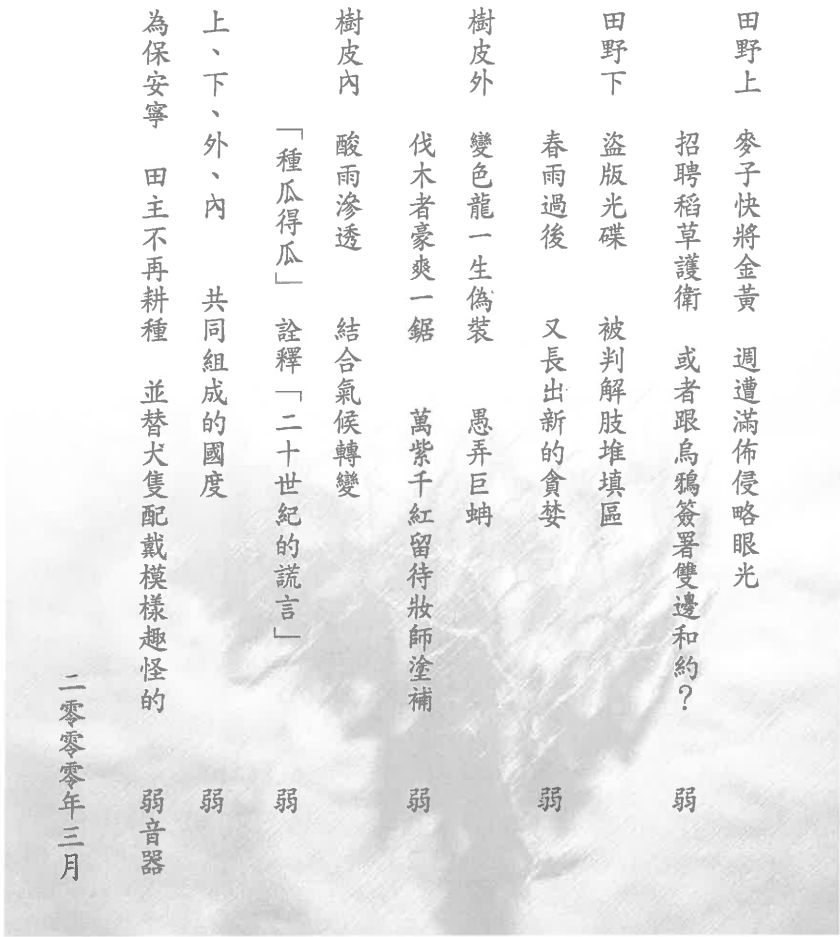 田野上　麥子快將金黃　週遭滿佈侵略眼光
招聘稻草護衛　或者跟烏鴉簽署雙邊和約？　弱
田野下　盜版光碟　被判解肢堆填區
春雨過後　又長出新的貪婪　弱
樹皮外　變色龍一生偽裝　愚弄巨蚺
伐木者豪爽一鋸　萬紫千紅留待妝師塗補　弱
樹皮內　酸雨滲透　結合氣候轉變
「種瓜得瓜」詮釋「二十世紀的謊言」　弱
上、下、外、內　共同組成的國度　弱
為保安寧　田主不再耕種　並替犬隻配戴模樣趣怪的　弱音器
二零零零年三月